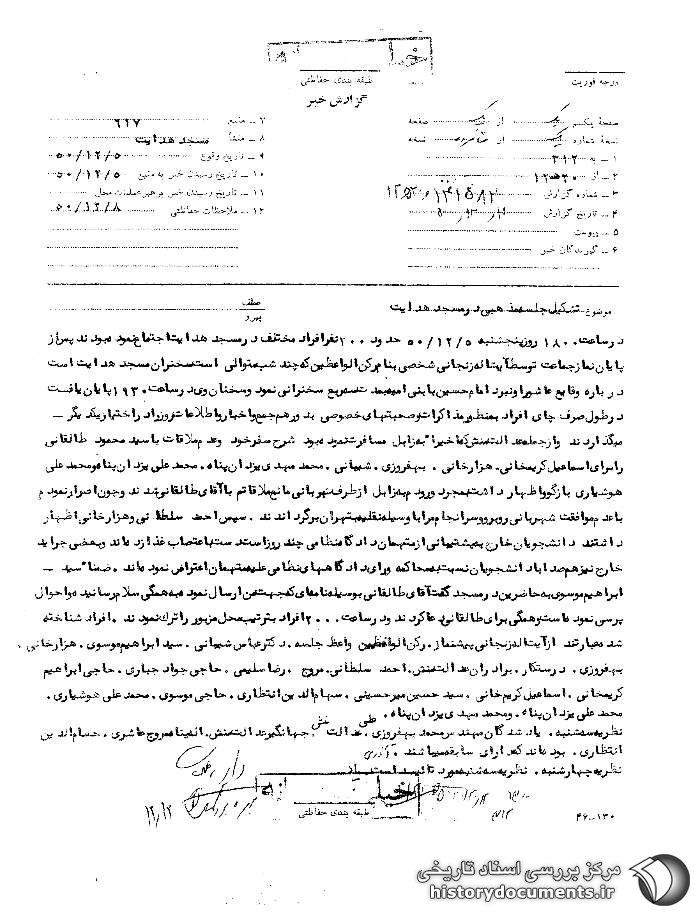 درجه فوریت
طبقه بندی حفاظتی
گزارش خبر
صفحه یکم از یک صفحه
نسخه شماره یک از نسخه
۱ ـ به ۳۱۲
۲ ـ از ۲۰ه۱۲
۳ ـ شماره گزارش
۴ ـ تاریخ گزارش
۵ ـ پیوست
۶ ـ گیرندگان خبر
۷ ـ منبع ۶۱۷
۸ ـ منشأ مسجد هدایت
۹ ـ تاریخ وقوع ۵۰/۱۲/۵
۱۰ ـ تاریخ رسیدن خبر به منبع ۵۰/۱۲/۵
۱۱ ـ تاریخ رسیدن خبر به رهبر عملیات محل
۱۲ ـ ملاحظات حفاظتی ۵۰/۱۲/۸
موضوع: تشکیل جلسه مذهبی در مسجد هدایت
عطف
پیرو
در ساعت ۱۸۰۰ روز پنجشنبه ۵۰/۱۲/۵ حدود ۲۰۰ نفر افراد مختلف در مسجد هدایت اجتماع نموده بودند پس از
پایان نماز جماعت توسط آیت اله زنجانی شخصی بنام رکن الواعظین که چند شب متوالی است سخنران مسجد هدایت است
در باره وقایع عاشورا و نبرد امام حسین با بنی امیه بمدت سخنرانی نمود و سخنان وی در ساعت ۱۹۳۰ پایان یافت
در طول صرف چای افراد بمنظور مذاکرات و صحبتهای خصوصی بدور هم جمع و اخبار و اطلاعات روز را در اختیار یکدیگر ـ
میگذاردند و از جمله عدالت منش که اخیرا به زابل مسافرت نموده بود شرح سفر خود و عدم ملاقات با سید محمود طالقانی
را برای اسماعیل کریمخانی. هزارخانی. بهفروزی. شیبانی. محمد مهدی یزدان پناه. محمد علی یزدان پناه و محمد علی
هوشیاری بازگو و اظهار داشت بمجرد ورودم به زابل از طرف شهربانی مانع ملاقاتم با آقای طالقانی شدند و چون اصرار نمودم
با عدم موافقت شهربانی روبرو و سرانجام مرا با وسیله نقلیه بتهران برگرداندند. سپس احمد سلطانی و هزارخانی اظهار
داشتند دانشجویان خارج به پشتیبانی از متهمان دادگاه نظامی چند روز است دست به اعتصاب غذا زده اند و بعضی جراید
خارج نیز هم صدا با دانشجویان نسبت به محاکمه و رای دادگاههای نظامی علیه متهمان اعتراض نموده اند. ضمنا سید ـ
ابراهیم موسوی به حاضرین در مسجد گفت آقای طالقانی بوسیله نامه ای که جهت من ارسال نموده به همگی سلام رسانیده و احوال
پرسی نموده است و همگی برای طالقانی دعا کردند و در ساعت ۲۰۰۰ افراد بترتیب محل مزبور را ترک نمودند. افراد شناخته
شده عبارتند از آیت اله زنجانی پیشنماز. رکن الواعظین واعظ جلسه. دکتر عباس شیبانی. سید ابراهیم موسوی. هزارخانی.
بهفروزی. درستکار. برادران عدالت منش. احمد سلطانی. مروج. رضا سلیمی. حاجی جواد جباری. حاجی ابراهیم
کریمخانی. اسماعیل کریم خانی. سید حسین میرحسینی. سهام الدین انتظاری. حاجی موسوی. محمد علی هوشیاری.
محمد علی یزدان پناه. و محمد مهدی یزدان پناه.
نظریه سه شنبه. یاد شدگان مهندس محمد بهفروزی. علی عدالت منش جهانگیر عدالت منش. الدین مروج عاشری. حسام الدین
انتظاری. بوده اند که دارای سابقه میباشند.
نظریه چهارشنبه. نظریه سه شنبه مورد تائید است.
طبقه بندی حفاظتی
۴۶-۱۳۰
مرکز بررسی اسناد تاریخی
historydocuments.ir